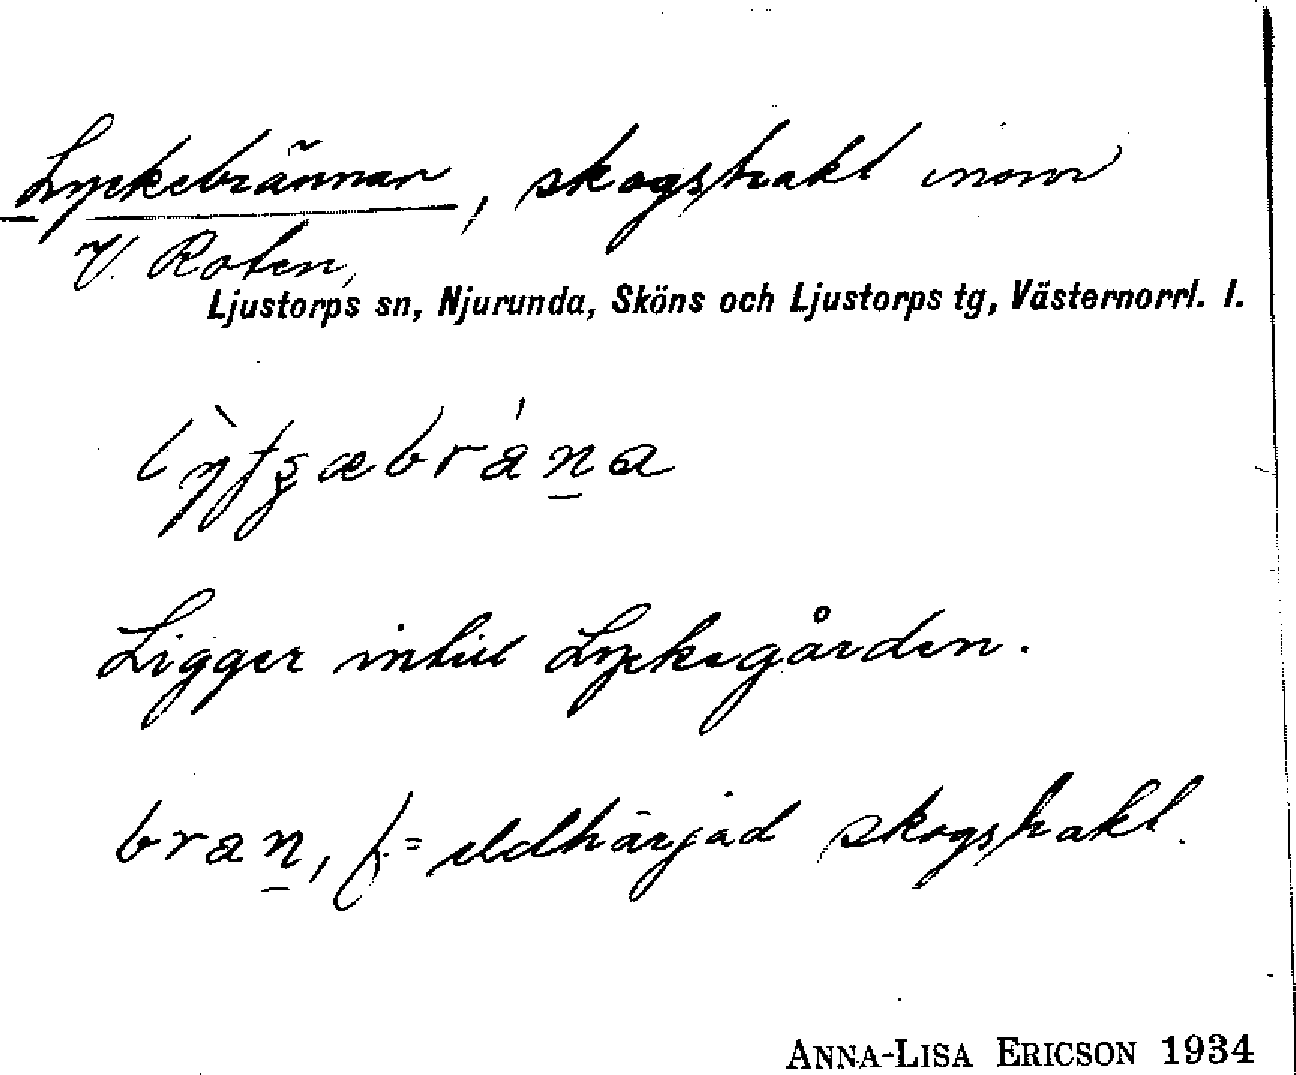 Lyckebrännan, skogstrakt inom
V. Roten,
Ljustorps sn, Njurunda, Sköns och Ljustorps tg, Västernorrl. l.
Ligger intill Lyckegården.
bran, f. = eldhärjad skogstrakt.
ANNA-LISA ERICSON 1934